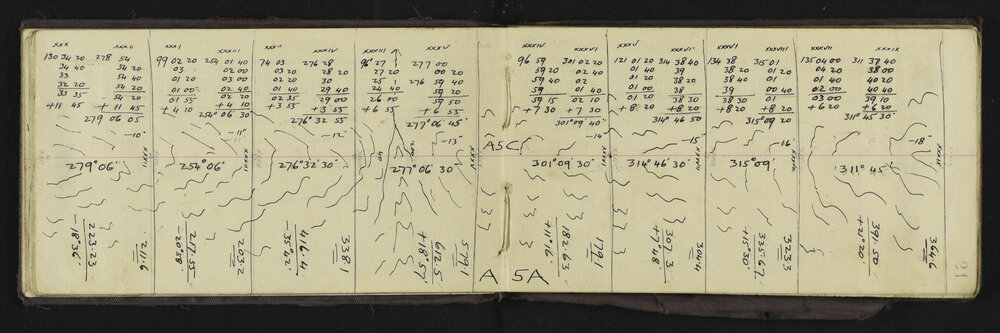 XXX XXXII
130 34 20 278 54
34 40 54 20
33 54 40
32 20 54 20
33 35 54 20
+11 45 + 11 45
279 06 05
-10-
279° 06'
XXXI XXXIII
99 02 20 254 01 40
03 02 00
01 20 03 00
01 00 02 40
01 55 02 20
+ 4 10 + 4 10
254° 06 30
-11-
254° 06'
XXXII XXXIV
74 03 276 28
03 20 28 20
02 20 30
01 40 29 40
02 35 29 00
+ 3 55 + 3 55
276° 32 55
-12-
276° 32' 30"
XXXIII XXXV
96° 27 277 00
27 20 00 20
25 276 59 40
24 40 59 20
26 00 59 50
+ 6 55 + 6 55
277° 06 45
-13-
277° 06 30"
XXXIV XXXVI
96 59 301 02 20
59 20 02 40
59 40 02
59 01 40
59 15 02 10
+ 7 30 + 7 30
301° 09 40
-14-
A5C
301° 09' 30"
121 01 20 314 38 40
01 40 39
01 00 38 20
01 38 40
38 30
+ 8 20 + 8 20
314° 46 50
-15-
314° 46' 30"
XXXVI XXXVIII
134 38 315 01
38 20 01 20
38 40 01
39 00 40
38 30 01
+8 20 + 8 20
315° 09 20
-16-
315° 09'
XXXVII XXXIX
135 04 00 311 37 40
04 20 38 00
01 40 40 20
02 00 40 40
03 00 39 10
+ 6 20 + 6 20
311° 45' 30
-18-
311° 45'
211.6
223.23
-18° 36'
202.2
217.55
-20° 58'
338.1
416.4
-35° 42'
579.1
612.5
+18° 57'
A 5A
179.1
182.63
+11° 16'
304.4
307.3
+7° 48
323.3
335.67
+15° 30'
364.6
391.50
+21° 20'
21